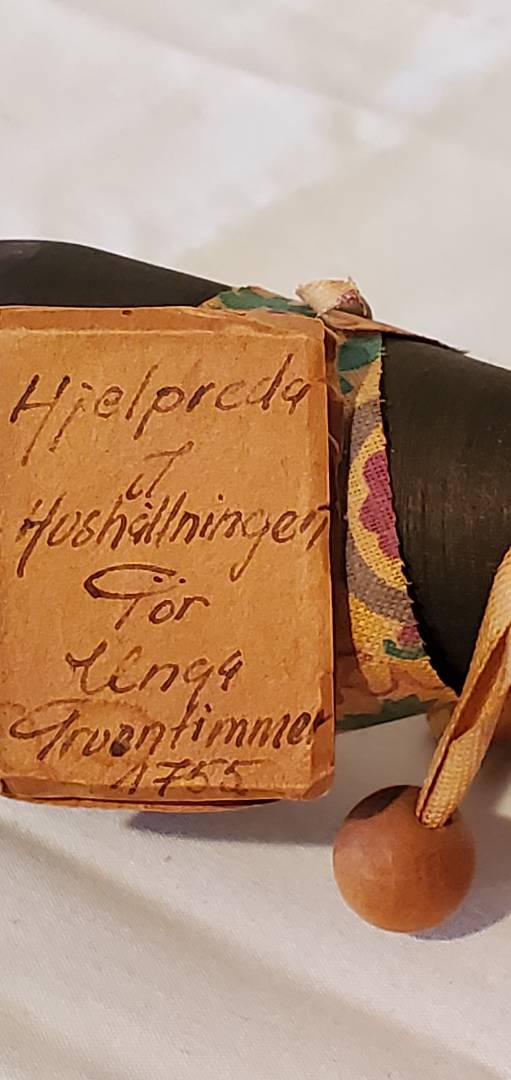 Hjelpreda
i
Hushållningen
För
Unga
Fruentimmer
1755